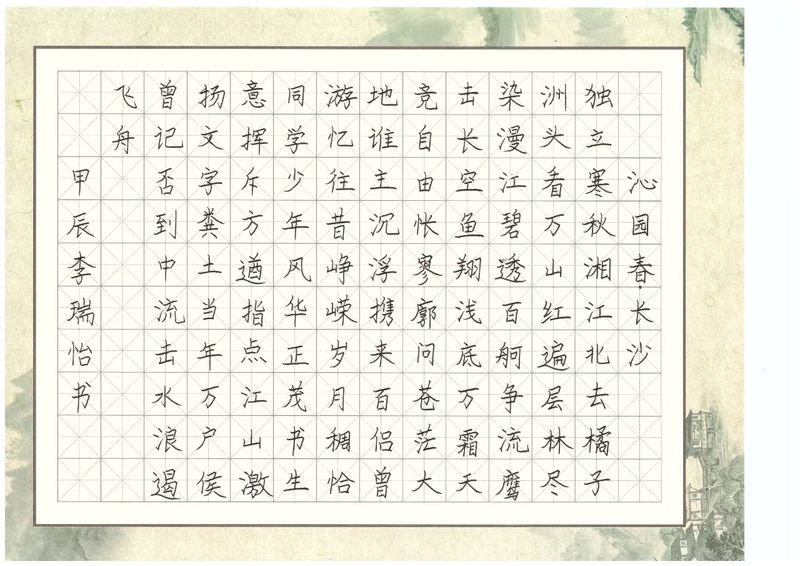 沁园春·长沙
独立寒秋湘江北去橘子
洲头看万山红遍层林尽
染漫江碧透百舸争流鹰
击长空鱼翔浅底万霜天
竞自由怅寥廓问苍茫大
地谁主沉浮携来百侣曾
游忆往昔峥嵘岁月稠恰
同学少年风华正茂书生
意挥斥方遒指点江山激
扬文字粪土当年万户侯
曾记否到中流击水浪遏
飞舟
甲辰李瑞怡书